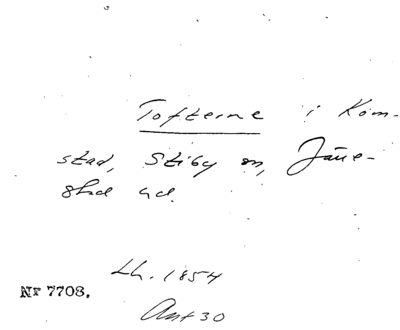 Tofterne i Kom-
stad, Stiby sn, Järre-
stad hd.
Lh. 1854
Nr 7708.
Akt 30